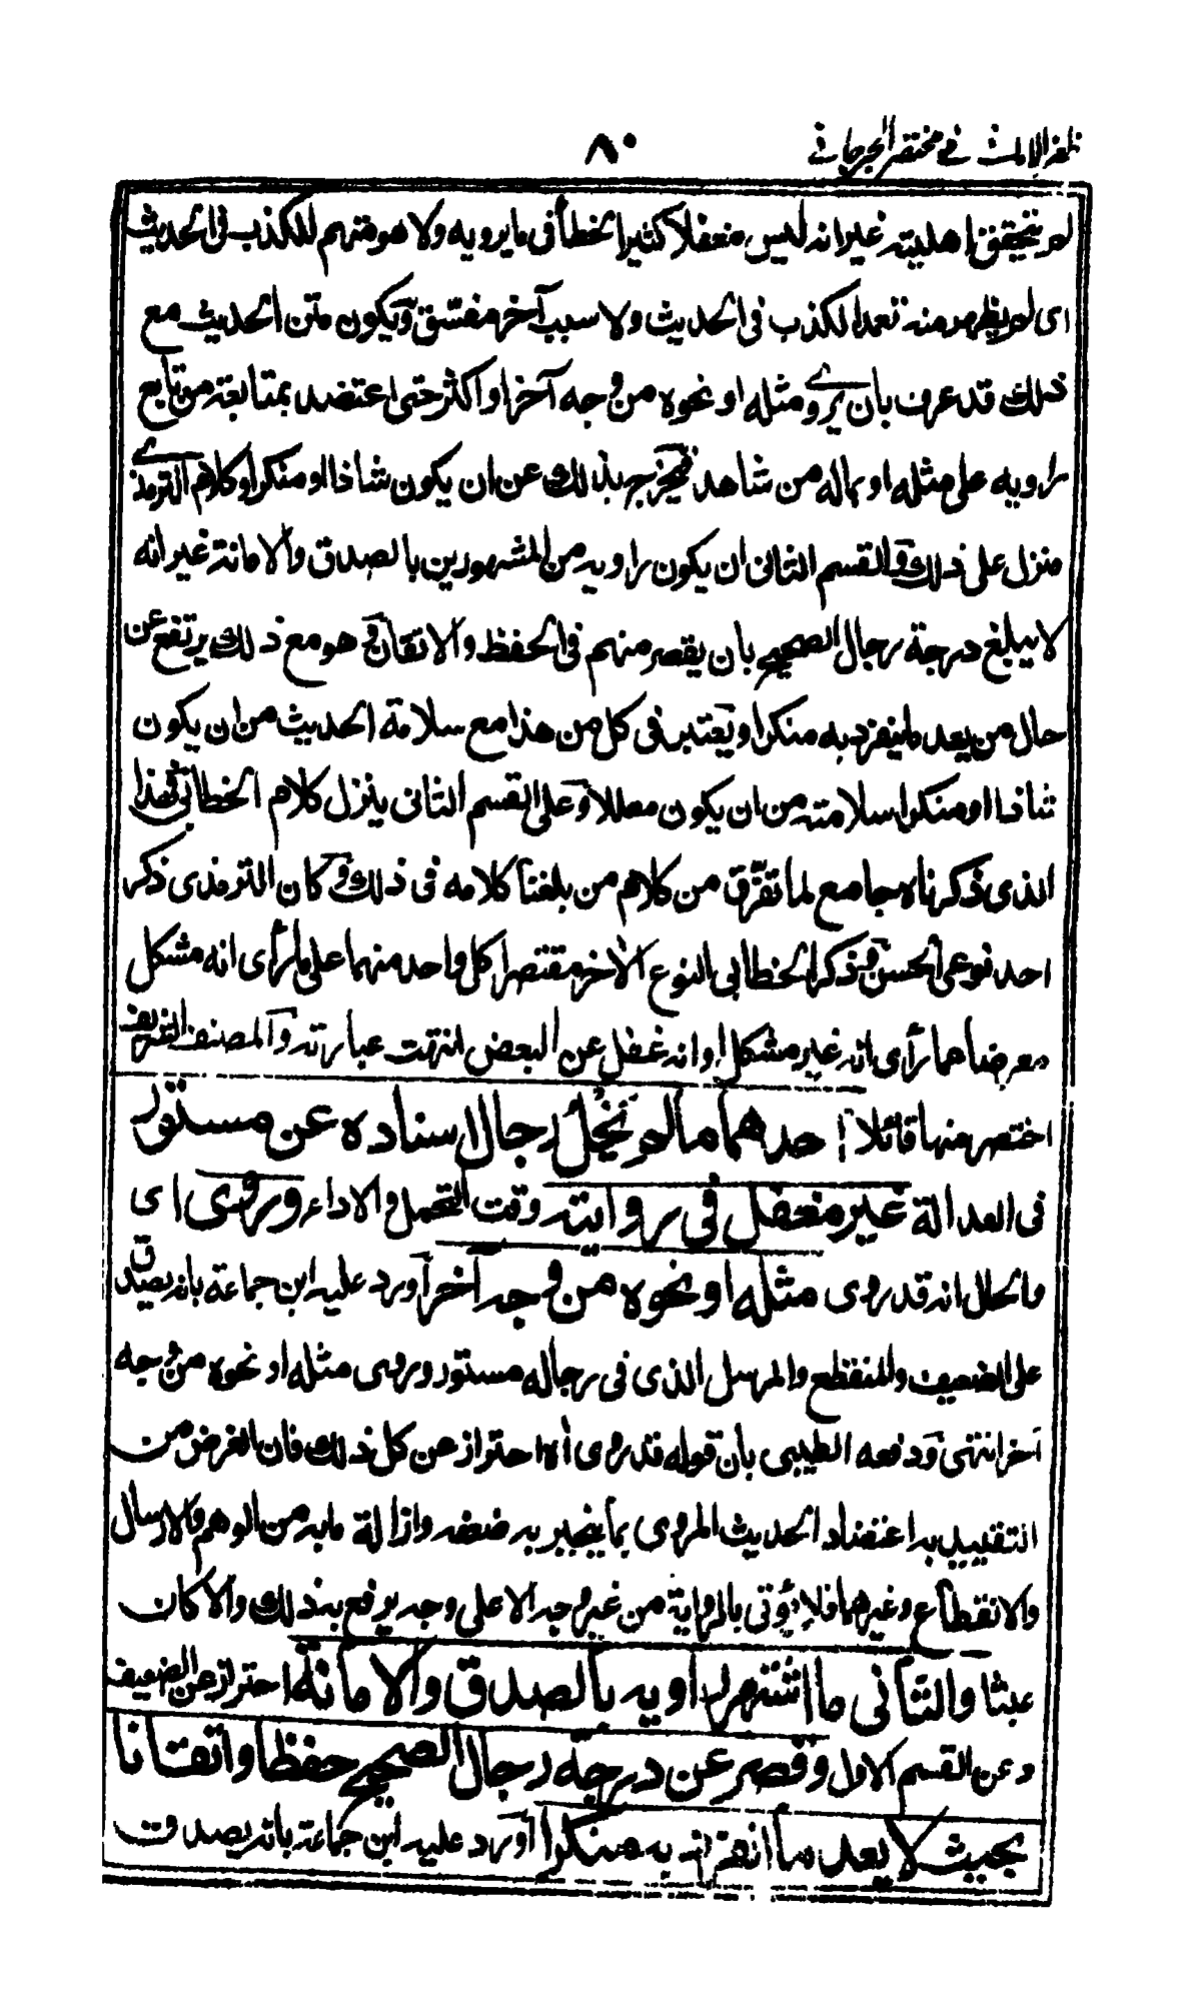 ظفر الامانى فى مختصر الجرجانى
٨٠
لم يتحقق اهليته غير انه ليس مغفلا كثير الخطأ فى ما يرويه ولا هو متهم للكذب فى الحديث
اى لم يظهر منه تعمد الكذب فى الحديث ولا سبب آخر مفسّق ويكون متن الحديث مع
ذلك قد عرف بان يروے مثله او نحوه من وجه آخر او اكثر حتى اعتضد بمتابعة من تابع
راويه على مثله او بماله من شاهد فيخرج بذلك عن ان يكون شاذا او منكرا وكلام الترمذے
منزل على ذلك والقسم الثانى ان يكون راويه من المشهورين بالصدق والامانة غير انه
لا يبلغ درجة رجال الصحيح بان يقصر منهم فى الحفظ والاتقان وهو مع ذلك يرتفع عن
حال من يعد ما ينفرد به منكرا ويعتبر فى كل من هذا مع سلامة الحديث من ان يكون
شاذا او منكرا سلامته من ان يكون معللا وعلى القسم الثانى ينزل كلام الخطابى فهذا
الذى ذكرناه جامع لما تفرّق من كلام من بلغنا كلامه فى ذلك وكان الترمذى ذكر
احد نوعى الحسن وذكر الخطابى النوع الآخر مقتصرا كل واحد منهما على ما رأى انه مشكل
معرضا عما رأى انه غير مشكل او انه غفل عن البعض انتهت عبارته والمصنف الشريف
اختصر منها قائلا احدهما ما لم يخل رجال اسناده عن مستور
فى العدالة غير مغفل فى روايته وقت التحمل والاداء وروى اى
والحال انه قد روى مثله او نحوه من وجه آخر اورد عليه ابن جماعة بانه يصدق
على الضعيف والمنقطع والمرسل الذى فى رجاله مستور وروى مثله او نحوه من وجه
آخر انتهى ودفعه الطيبى بان قوله قد روى اه احتراز عن كل ذلك فان الغرض من
التقييد به اعتضاد الحديث المروى بما ينجبر به ضعفه وازالة ما به من الوهم والارسال
والانقطاع وغيرهما فلا يؤتى بالرواية من غير وجه الا على وجه يرفع به ذلك والا كان
عبثا والثانى ما اشتهر راويه بالصدق والامانة احتراز عن الضعيف
وعن القسم الاول وقصر عن درجة رجال الصحيح حفظا واتقانا
بحيث لا يعد ما انفرد به منكرا اورد عليه ابن جماعة بانه يصدق